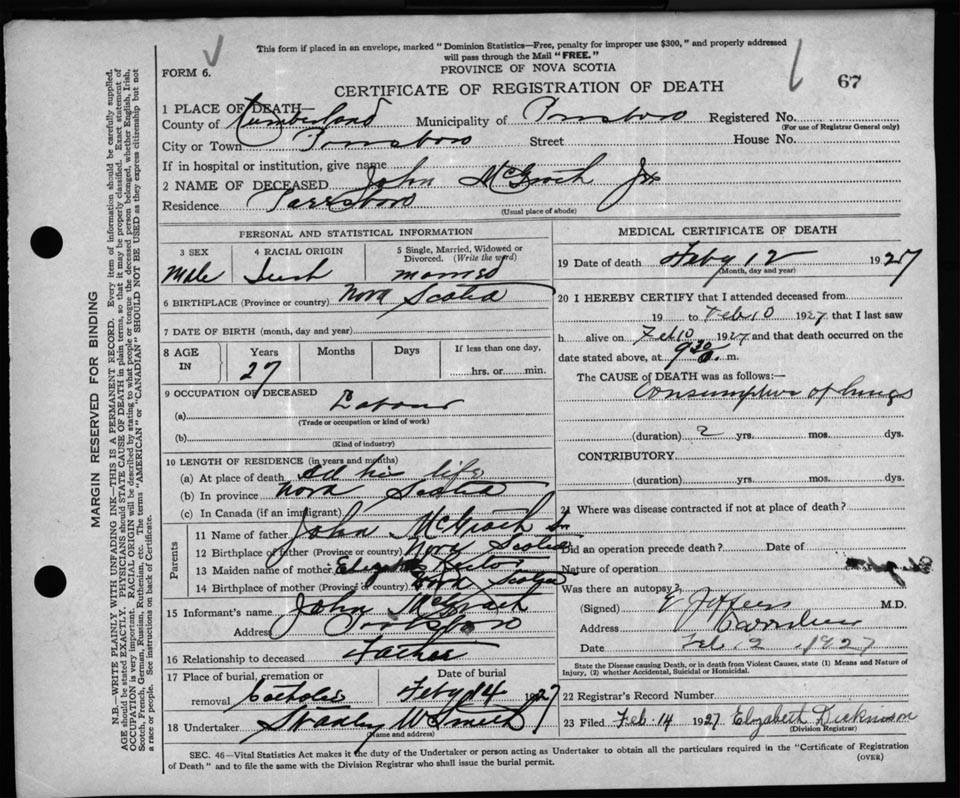 This form if placed in an envelope, marked "Dominion Statistics—Free, penalty for improper use $300," and properly addressed
will pass through the Mail "FREE."
PROVINCE OF NOVA SCOTIA
FORM 6.
67
CERTIFICATE OF REGISTRATION OF DEATH
1 PLACE OF DEATH—
County of Cumberland Municipality of Parrsboro Registered No.
(For use of Registrar General only)
City or Town Parrsboro Street House No.
If in hospital or institution, give name
2 NAME OF DECEASED John Jr
Residence Parrsboro
(Usual place of abode)
PERSONAL AND STATISTICAL INFORMATION
3 SEX 4 RACIAL ORIGIN 5 Single, Married, Widowed or
Divorced. (Write the word)
Male Irish married
6 BIRTHPLACE (Province or country) Nova Scotia
7 DATE OF BIRTH (month, day and year)
8 AGE IN Years Months Days If less than one day,
27 hrs. or min.
9 OCCUPATION OF DECEASED
(a) Labour
(Trade or occupation or kind of work)
(b)
(Kind of industry)
10 LENGTH OF RESIDENCE (in years and months)
(a) At place of death All his life
(b) In province Nova Scotia
(c) In Canada (if an immigrant)
Parents
11 Name of father John Sr
12 Birthplace of father (Province or country) Nova Scotia
13 Maiden name of mother
14 Birthplace of mother (Province or country) Nova Scotia
15 Informant's name John
Address Parrsboro
16 Relationship to deceased Father
17 Place of burial, cremation or removal Date of burial
Catholic Feby 14 1927
18 Undertaker Stanley W Smith
(Name and address)
MEDICAL CERTIFICATE OF DEATH
19 Date of death Feby 12 1927
(Month, day and year)
20 I HEREBY CERTIFY that I attended deceased from
19 to Feb 10 1927 that I last saw
h alive on Feb 10 1927 and that death occurred on the
date stated above, at 9 30 a. m.
The CAUSE of DEATH was as follows:—
Consumption of lungs
(duration) 2 yrs. mos. dys.
CONTRIBUTORY
(duration) yrs. mos. dys.
21 Where was disease contracted if not at place of death?
Did an operation precede death? Date of
Nature of operation
Was there an autopsy?
(Signed) M.D.
Address
Date Feb. 1927
State the Disease causing Death, or in death from Violent Causes, state (1) Means and Nature of
Injury, (2) whether Accidental, Suicidal or Homicidal.
22 Registrar's Record Number
23 Filed Feb. 14 1927 Elizabeth Dickinson
(Division Registrar)
SEC. 46—Vital Statistics Act makes it the duty of the Undertaker or person acting as Undertaker to obtain all the particulars required in the "Certificate of Registration
of Death" and to file the same with the Division Registrar who shall issue the burial permit.
(OVER)
MARGIN RESERVED FOR BINDING
N.B.—WRITE PLAINLY WITH UNFADING INK—THIS IS A PERMANENT RECORD. Every item of information should be carefully supplied.
AGE should be stated EXACTLY. PHYSICIANS should STATE CAUSE OF DEATH in plain terms, so that it may be properly classified. Exact statement of
OCCUPATION is very important. RACIAL ORIGIN will be described by stating to what people or tongue the deceased person belonged, whether English, Irish,
Scotch, French, German, Russian, Ruthenian, etc. The terms "AMERICAN" or "CANADIAN" SHOULD NOT BE USED as they express citizenship but not
a race or people. See instructions on back of Certificate.